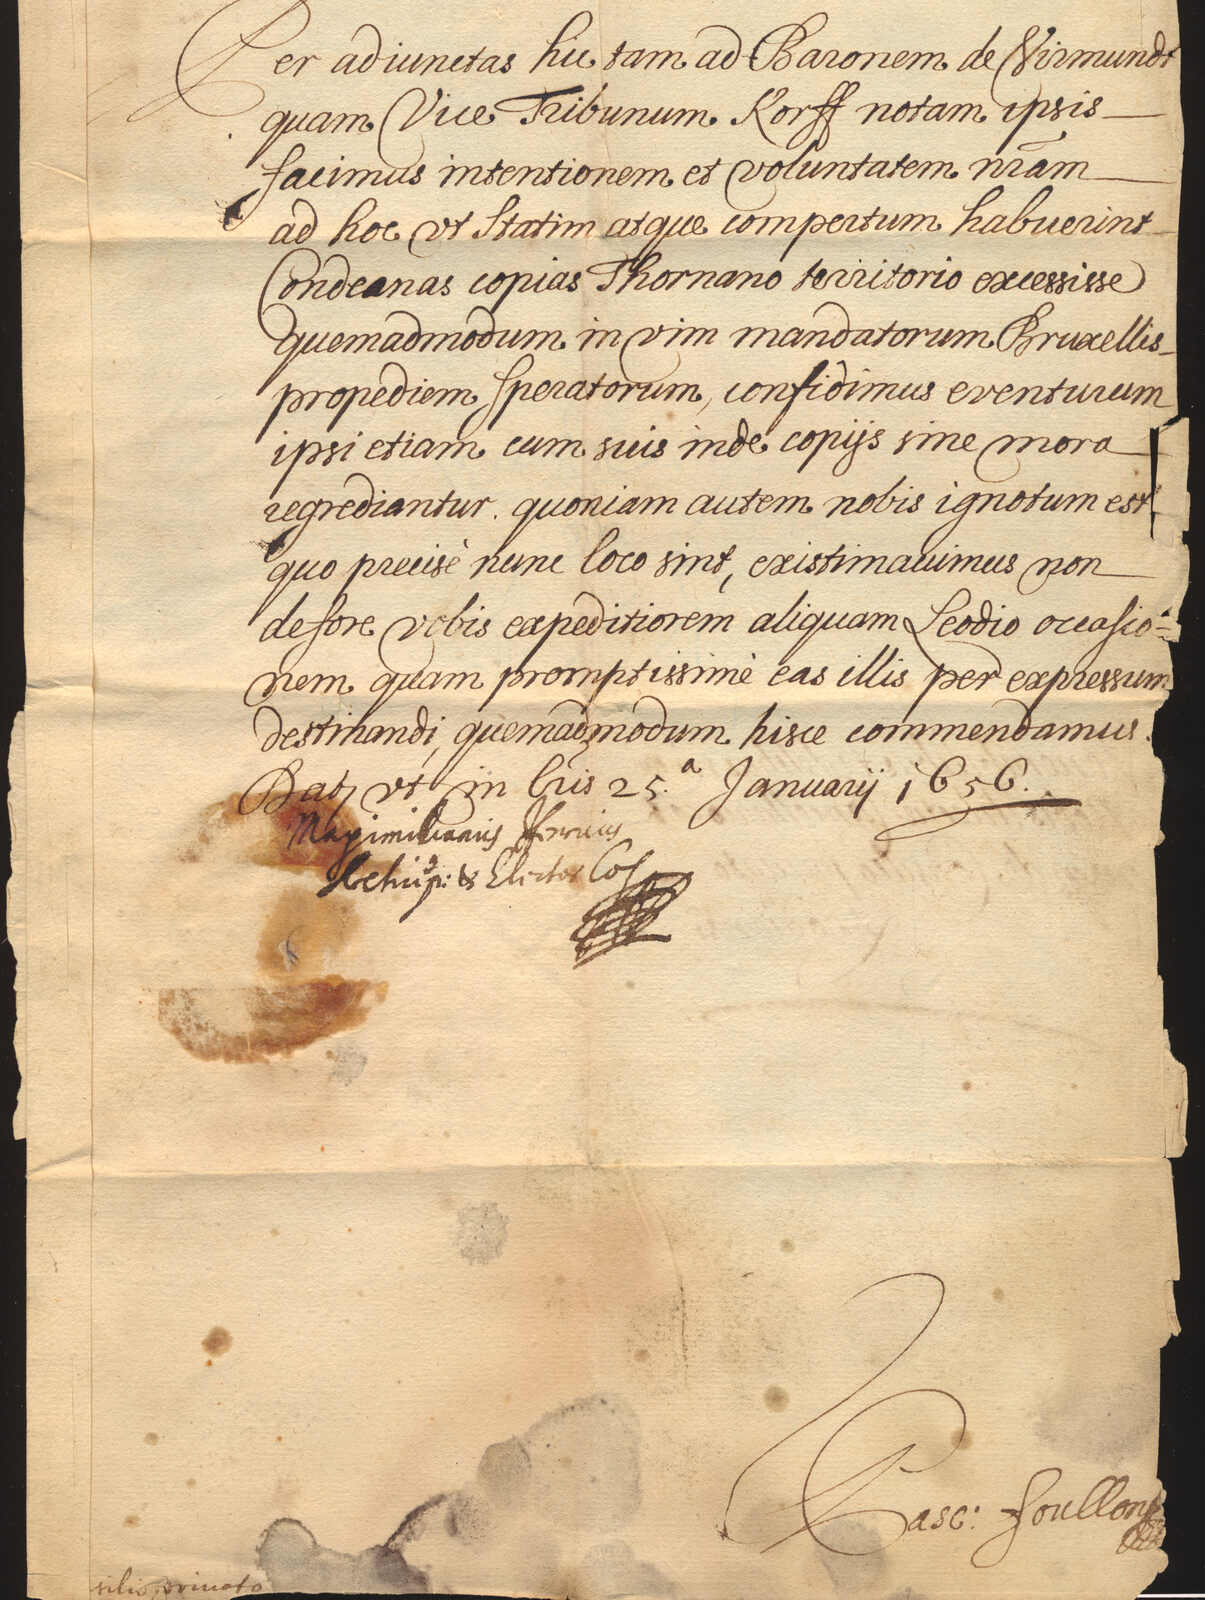 Per adiunctas hic tam ad Baronem de Virmundt
quam Vice Tribunum Korff notam ipsis
facimus intentionem et voluntatem nrãm
ad hoc vt statim atque compertum habuerint
Condeanas copias Thornano territorio excessisse
quemadmodum in vim mandatorum Bruxellis
propediem speratorum, confidimus eventurum
ipsi etiam cum suis inde copijs sine mora
regrediantur. quoniam autem nobis ignotum est
quo precisè nunc loco sint, existimauimus non
defore vobis expeditiorem aliquam Leodio occasio=
nem quam promptissimè eas illis per expressum
destinandi, quemadmodum hisce commendamus.
Dat vt in lris 25.a Januarij 1656.
Maximilianus Henricus
Archiep: & Elector Col
Pasc: Foullon
silio priuato